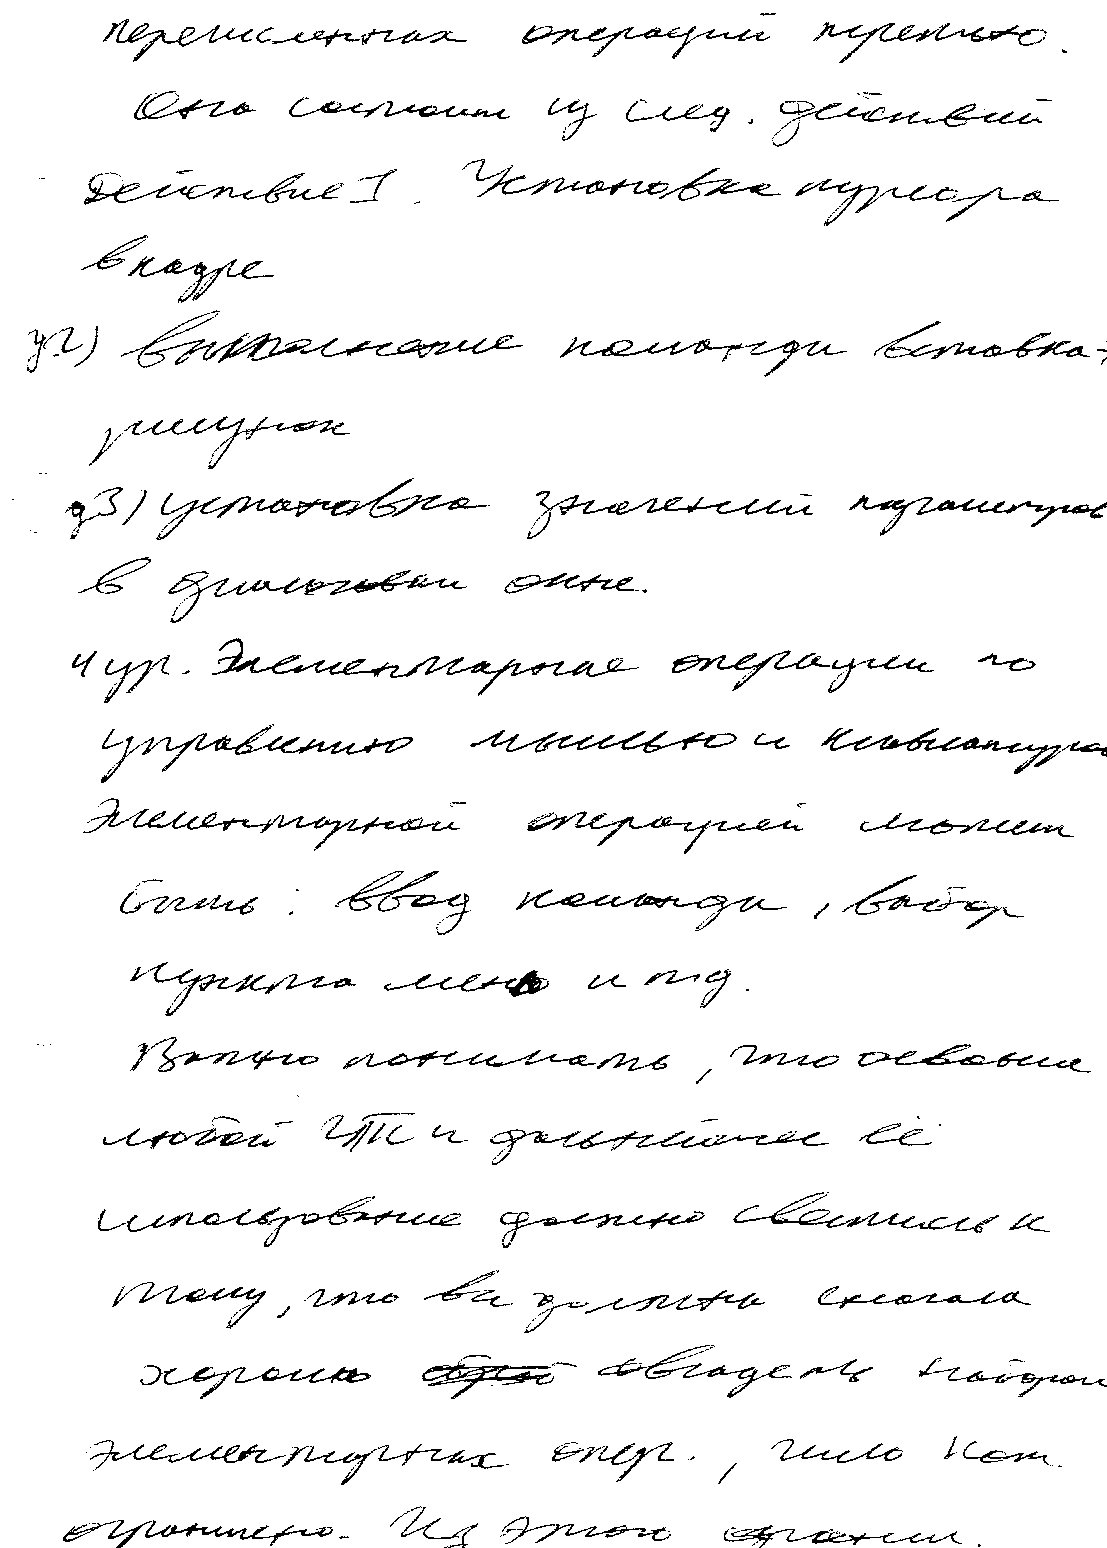 перечисленных операций
Она состоит из след. действий
Действие 1. Установка курсора
в кадре
д2) Выполнение команды вставка-
рисунок
д3) установка значений параметров
в диалоговом окне.
4 ур. Элементарные операции по
управлению мышью и клавиатурой
Элементарной операцией может
быть: ввод команды, выбор
пункта меню и т д.
Важно понимать, что освоение
любой ИТ и дальнейшее её
использование должно свестись к
тому, что вы должны сначала
хорошо овладеть набором
элементарных опер., число кот.
ограничено. Из этого